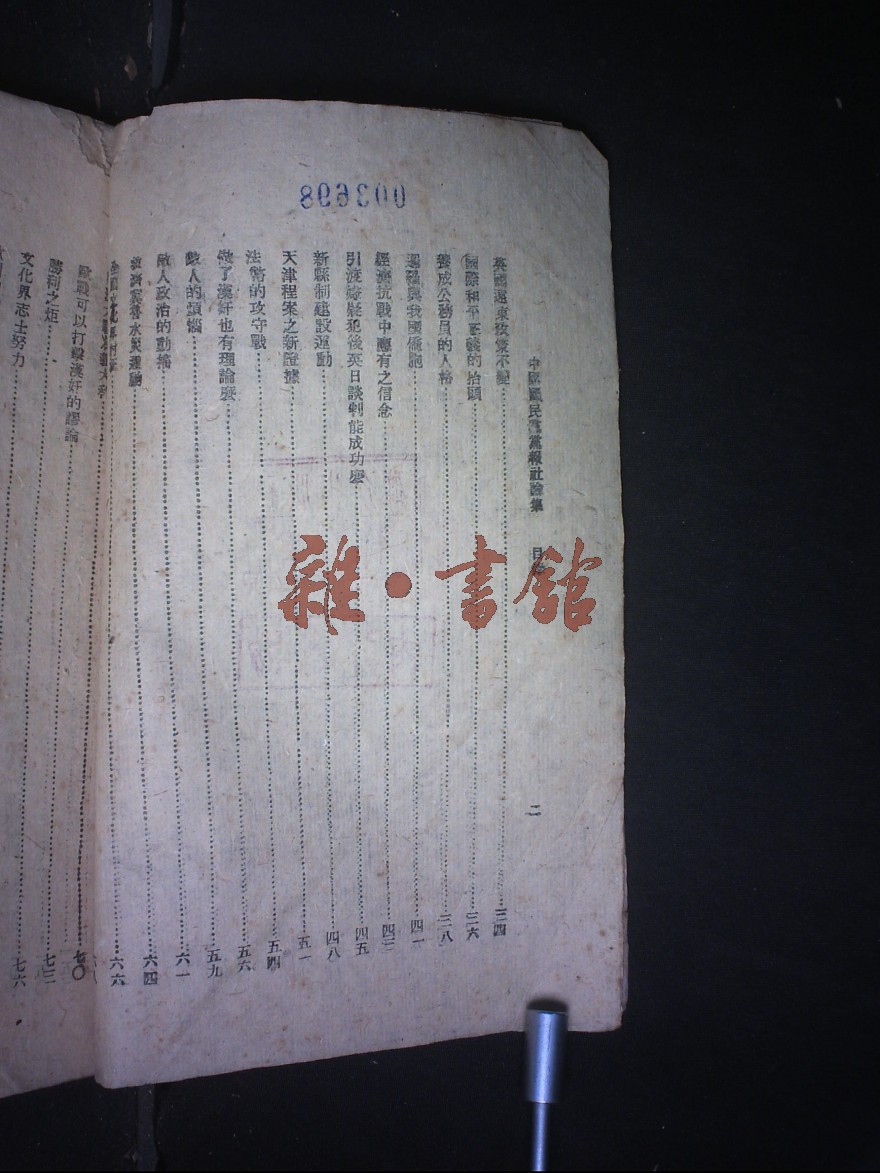 003698
中國國民黨黨報社論集 目 二
英國遠東政策不變 三四
國際和平正義的抬頭 三六
養成公務員的人格 三八
暹羅與我國僑胞 四一
經濟抗戰中應有之信念 四三
引渡嫌疑犯後英日談判能成功麽 四五
新縣制建設運動 四八
天津程案之新證據 五一
法幣的攻守戰 五四
做了漢奸也有理論麽 五六
敵人的煩惱 五九
敵人政治的動搖 六一
救濟冀魯水災運動 六四
六六
六八
歐戰可以打擊漢奸的謬論 七〇
勝利之矩 七三
文化界志士努力 七六
雜·書館